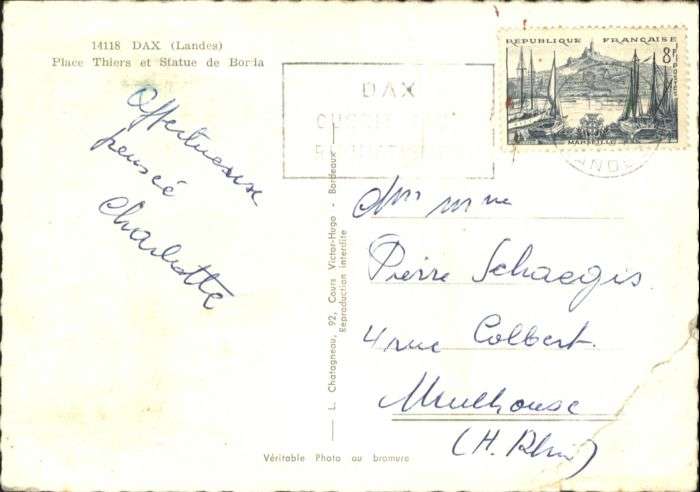 14118 DAX (Landes)
Place Thiers et Statue de Borda
Affectueuse
pensée
Charlotte
DAX
REPUBLIQUE FRANÇAISE
8F
POSTES
MARSEILLE
L. Chatagneau, 92, Cours Victor-Hugo - Bordeaux
Reproduction interdite
Mr Mme
Pierre Schaegis
4 rue Colbert.
Mulhouse
(H. Rhin)
Véritable Photo au bromure